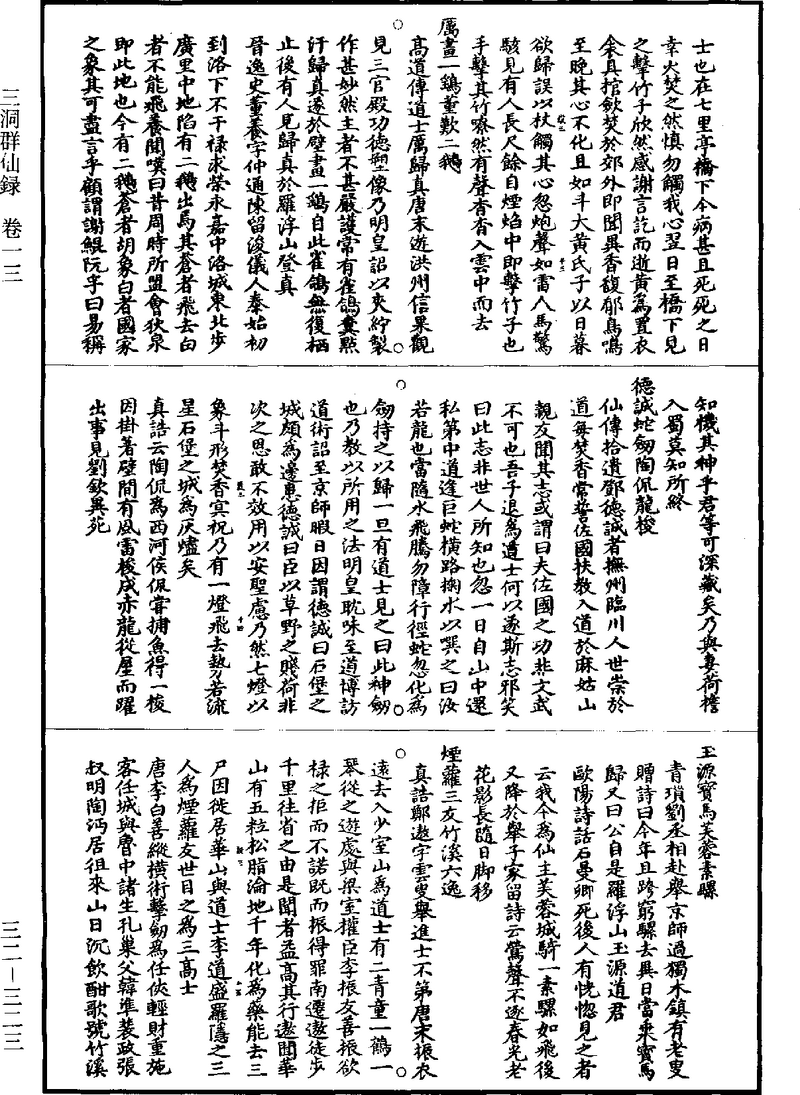 三洞群仙録　卷一三
三二—三二三
士也在七里亭橋下今病甚且死死之日
幸火焚之然慎勿觸我心翌日至橋下見
之擊竹子欣然感謝言訖而逝黃爲置衣
衾具棺歛焚於郊外即聞異香馥郁鳥鳴
至晚其心不化且如斗大黃氏子以日暮
欲歸誤以杖觸其心忽炮聲如雷人馬驚
駭見有人長尺餘自煙焰中即擊竹子也
手擊其竹嘹然有聲杳杳入雲中而去
厲畫一鷂董歎二鵝
高道傳道士厲歸真唐末遊洪州信果觀
見三官殿功德塑像乃明皇詔以夾紵製
作甚妙然主者不甚嚴護常有雀鴿糞點
汙歸真遂於壁畫一鷂自此雀鴿無復栖
止後有人見歸真於羅浮山登真
晉逸史董養字仲通陳留浚儀人秦始初
到洛下不干禄求榮永嘉中洛城東北步
廣里中地陷有二鵝出焉其蒼者飛去白
者不能飛養聞嘆曰昔周時所盟會狄泉
即此地也今有二鵝蒼者胡象白者國家
之象其可盡言乎顧謂謝鯤阮孚曰易稱
知機其神乎君等可深藏矣乃與妻荷檐
入蜀莫知所終
德誠蛇劒陶侃龍梭
仙傳拾遺鄧德誠者撫州臨川人世崇於
道每焚香常誓佐國扶教入道於麻姑山
親友聞其志或謂曰夫佐國之功非文武
不可也吾子退爲道士何以遂斯志邪笑
曰此志非世人所知也忽一日自山中還
私第中道逢巨蛇橫路掬水以噀之曰汝
若龍也當隨水飛騰勿障行徑蛇忽化爲
劒持之以歸一旦有道士見之曰此神劒
也乃教以所用之法明皇耽味至道博訪
道術詔至京師暇日因謂德誠曰石堡之
城頗爲邊患德誠曰臣以草野之賤荷非
次之恩敢不效用以安聖慮乃然七燈以
象斗形焚香冥祝乃有一燈飛去勢若流
星石堡之城爲灰燼矣
真誥云陶侃爲西河侯侃嘗捕魚得一梭
因掛著壁間有風雷梭成赤龍從屋而躍
出事見劉欽異苑
玉源寶馬芙蓉素騾
青瑣劉丞相赴舉京師過獨木鎮有老叟
贈詩曰今年且跨窮騾去異日當乘寶馬
歸又曰公自是羅浮山玉源道君
歐陽詩話石曼卿死後人有恍惚見之者
云我今爲仙主芙蓉城騎一素騾如飛後
又降於舉子家留詩云鶯聲不逐春光老
花影長隨日脚移
煙蘿三友竹溪六逸
真誥鄭遨字雲叟舉進士不第唐末振衣
遠去入少室山爲道士有二青童一鶴一
琴從之遊處與梁室權臣李振友善振欲
禄之拒而不諾既而振得罪南遷遨徒步
千里往省之由是聞者益高其行遨聞華
山有五粒松脂淪地千年化爲藥能去三
尸因徙居華山與道士李道盛羅隱之三
人爲煙蘿友世目之爲三高士
唐李白善縱橫術擊劒爲任俠輕財重施
客任城與魯中諸生孔巢父韓準裴政張
叔明陶沔居徂來山日沉飲酣歌號竹溪